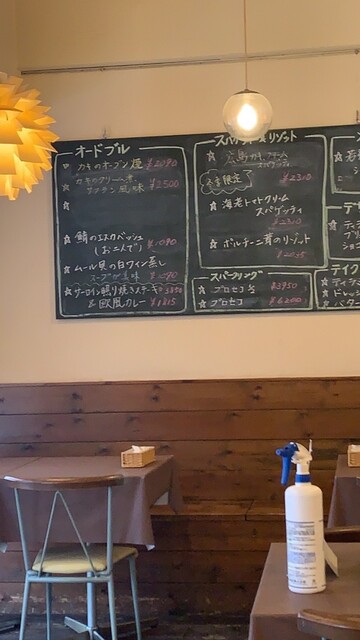 オードブル
☆ カキのオーブン焼 ¥2090
☆ カキのクリーム煮
サフラン風味 ¥2500
☆
☆ 鯖のエスカベッシュ
(お二人で) ¥1090
☆ ムール貝の白ワイン蒸し
スープが美味
☆ サーロイン照り焼きステーキ
& 欧風カレー ¥1815
スパゲッティ&リゾット
☆ 広島カキ クリーム
スパゲッティ
冬季限定 ¥2310
☆ 海老トマトクリーム
スパゲッティ
☆ ポルチーニ茸のリゾット
¥2035
スパークリング
☆ プロセコ ¥3950
☆ プロセコ ¥6200
☆ 若
デザ
☆
テイク
☆ テイクア
☆ ドレッシ
☆ バター